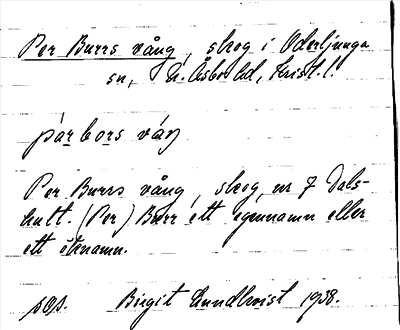 Per Burrs vång, skog i Oderljunga
sn, N. Åsbo hd, Krist. l.
pär bors váŋ
Per Burrs vång, skog, nr 7 Dals-
hult. (Per) Burr ett egennamn eller
ett öknamn.
Birgit Lundkvist 1938.